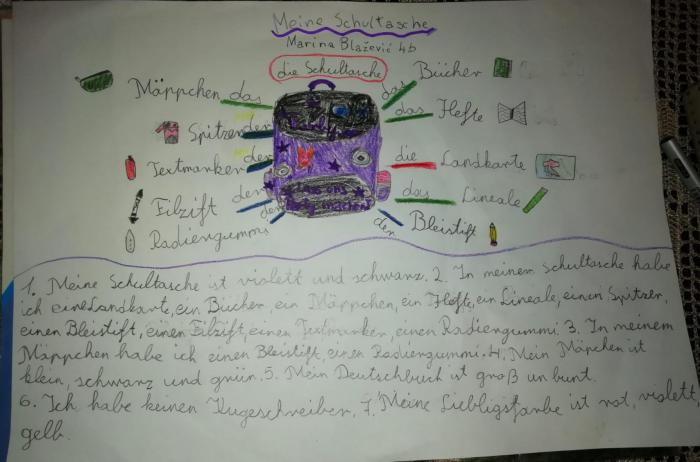 Meine Schultasche
Marina Blažević 4b
die Schultasche
Mäppchen das
das Bücher
das Hefte
Spitzer der
Textmarker der
die Landkarte
Filzift der
das Lineale
Radiergummi der
der Bleistift
Lass uns
Party machen!
1. Meine Schultasche ist violett und schwarz. 2. In meinem Schultasche habe
ich eine Landkarte, ein Bücher, ein Mäppchen, ein Hefte, ein Lineale, einen Spitzer,
einen Bleistift, einen Filzift, einen Textmarker, einen Radiergummi. 3. In meinem
Mäppchen habe ich einen Bleistift, einen Radiergummi. 4. Mein Mäpchen ist
klein, schwarz und grün. 5. Mein Deutschbuch ist groß un bunt.
6. Ich habe keinen Kugeschreiber. 7. Meine Liebligsfarbe ist rot, violett,
gelb.